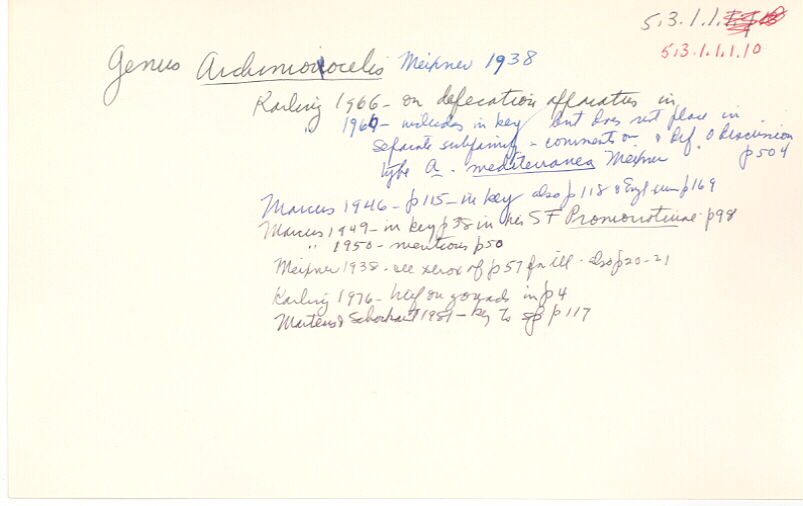 5.3.1.1.
5.3.1.1.1.10
Genus Archimonocelis Meixner 1938
Karling 1966 - on defecation apparatus in
" 1966 - includes in key but does not place in
separate subfamily - comments on & Def. & Discussion
type A. mediterranea Meixner p504
Marcus 1946 - p115 - in key also p118 & Engl sum p169
Marcus 1949 - in key p38 in his SF Promonotinae p98
" 1950 - mentions p50
Meixner 1938 - see xerox of p57 for ill - also p20-21
Karling 1976 - on gonads in p4
Martens & Schockaert 1981 - key to spp p117